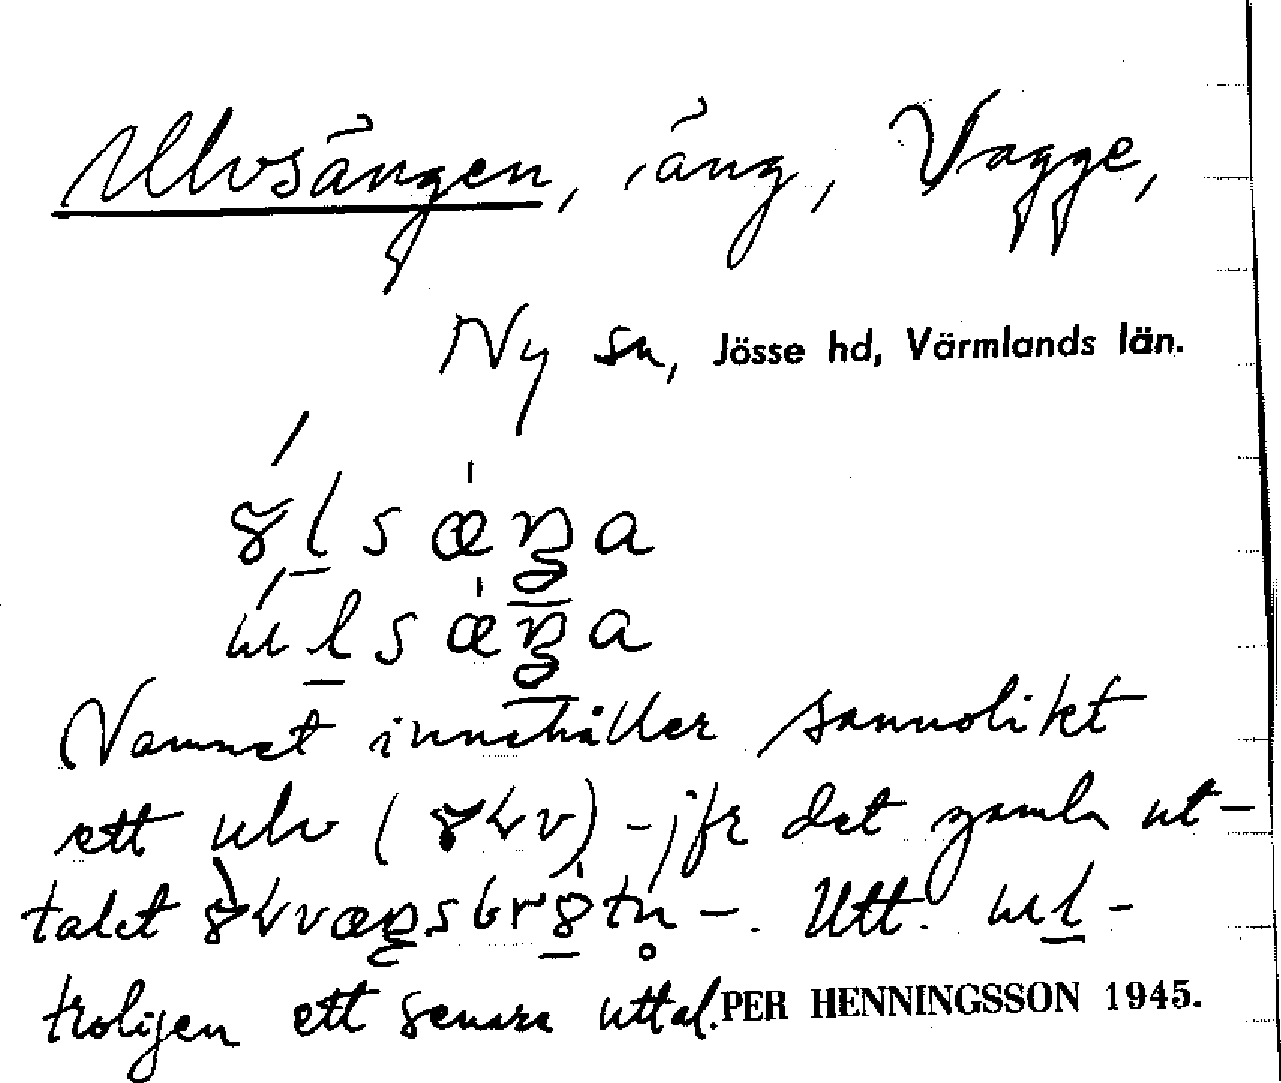 Ulvsängen, äng, Vagge,
Ny sn, Jösse hd, Värmlands län.
Namnet innehåller sannolikt
ett ulv ( ) - jfr det gamla ut-
talet - . Utt. ul -
troligen ett senare uttal. PER HENNINGSSON 1945.